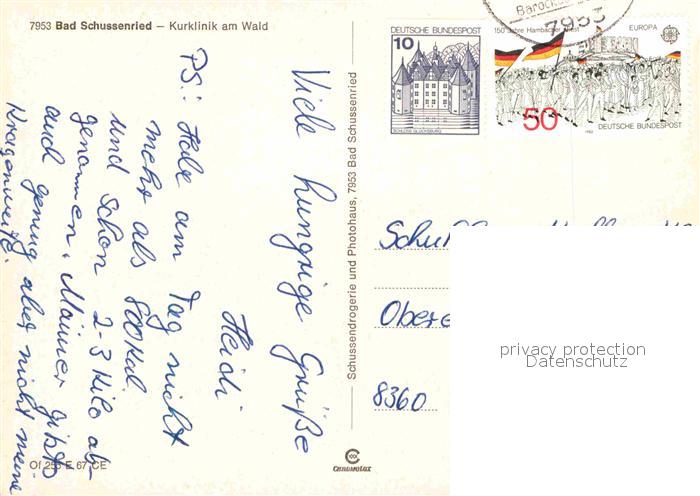 7953 Bad Schussenried – Kurklinik am Wald
Viele hungrige Grüße
Heidi
PS: Habe am Tag nicht
mehr als 800 Kal.
und schon 2-3 Kilo ab-
genommen. Männer gibts
auch genung aber nicht meine
Kragenweite.
Of 253 E 67 CE
Schussendrogerie und Photohaus, 7953 Bad Schussenried
CHROMOLUX
10
DEUTSCHE BUNDESPOST
SCHLOSS GLÜCKSBURG
150 Jahre Hambacher Fest
EUROPA
50
1982
DEUTSCHE BUNDESPOST
7953
Obere
8360
privacy protection
Datenschutz